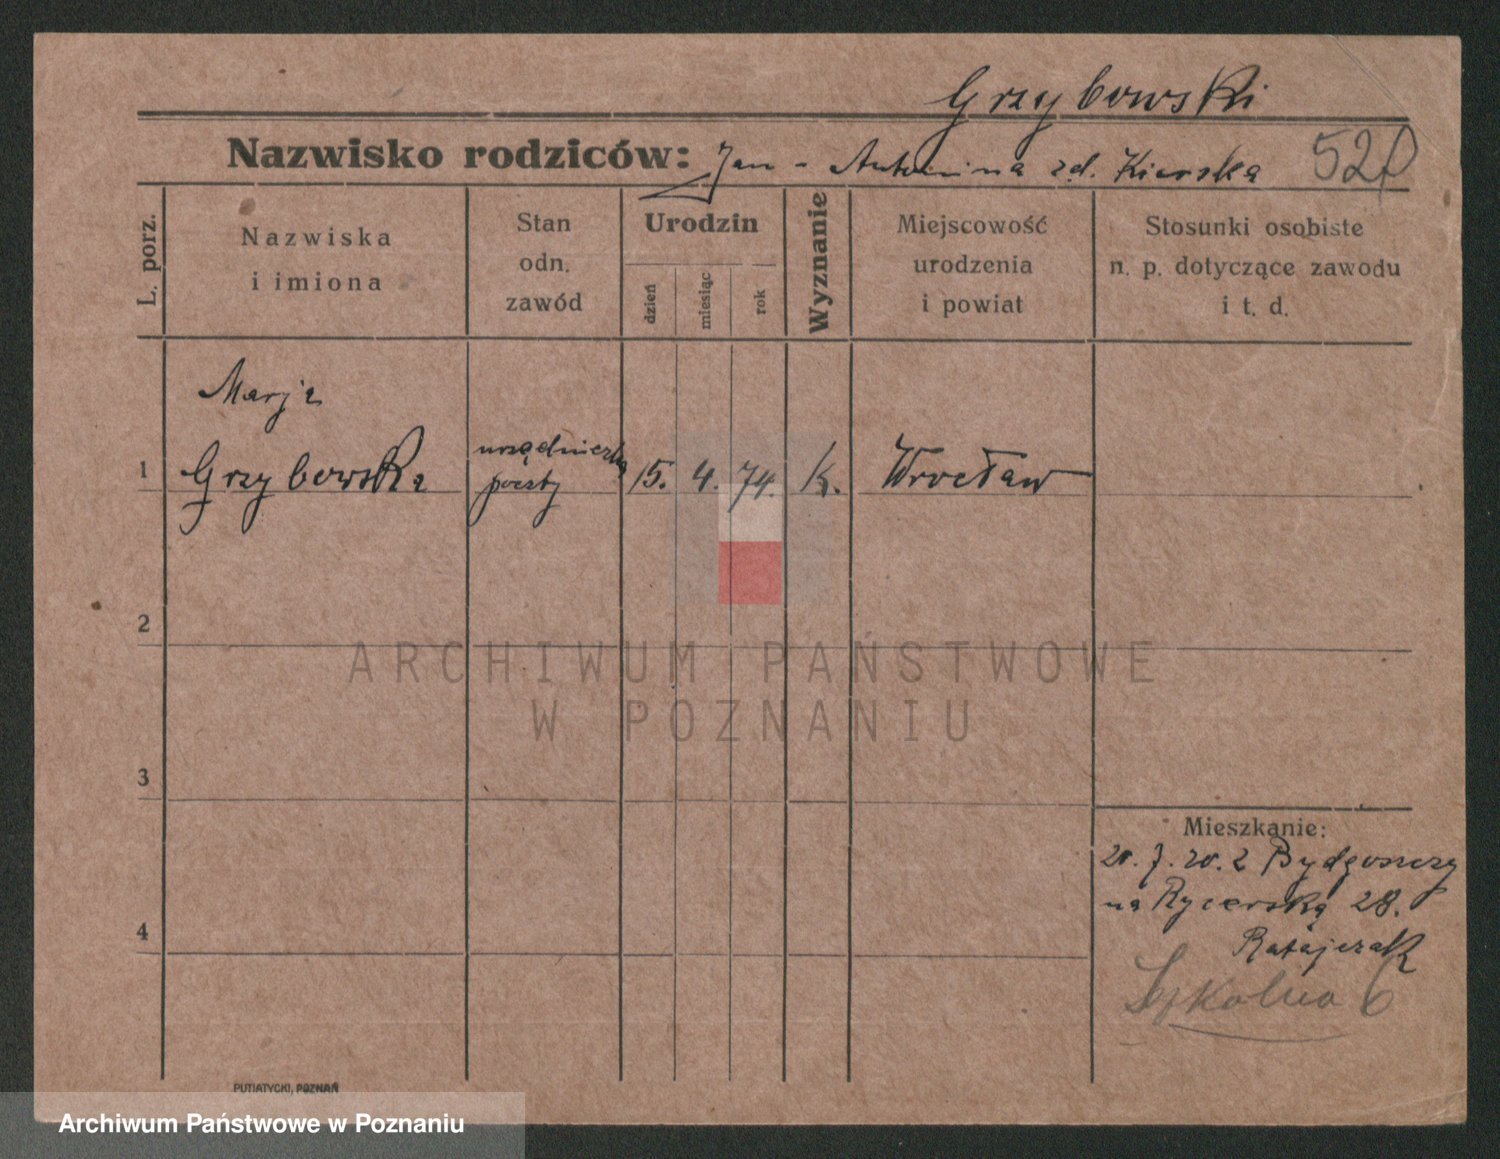 Grzybowski
Nazwisko rodziców: Jan - Antonina zd. Kierska
L. porz.
Nazwiska
i imiona
Stan
odn.
zawód
Urodzin
dzień
miesiąc
rok
Wyznanie
Miejscowość
urodzenia
i powiat
Stosunki osobiste
n. p. dotyczące zawodu
i t. d.
Marja
1 Grzybowska urzędniczka poczty 15. 4. 74. k. Wrocław
2
3
4
ARCHIWUM PAŃSTWOWE
W POZNANIU
Mieszkanie:
20. 7. 20. z Bydgoszczy
na Rycerską 28.
Ratajczak
Szkolna 6
PUTIATYCKI, POZNAŃ
Archiwum Państwowe w Poznaniu